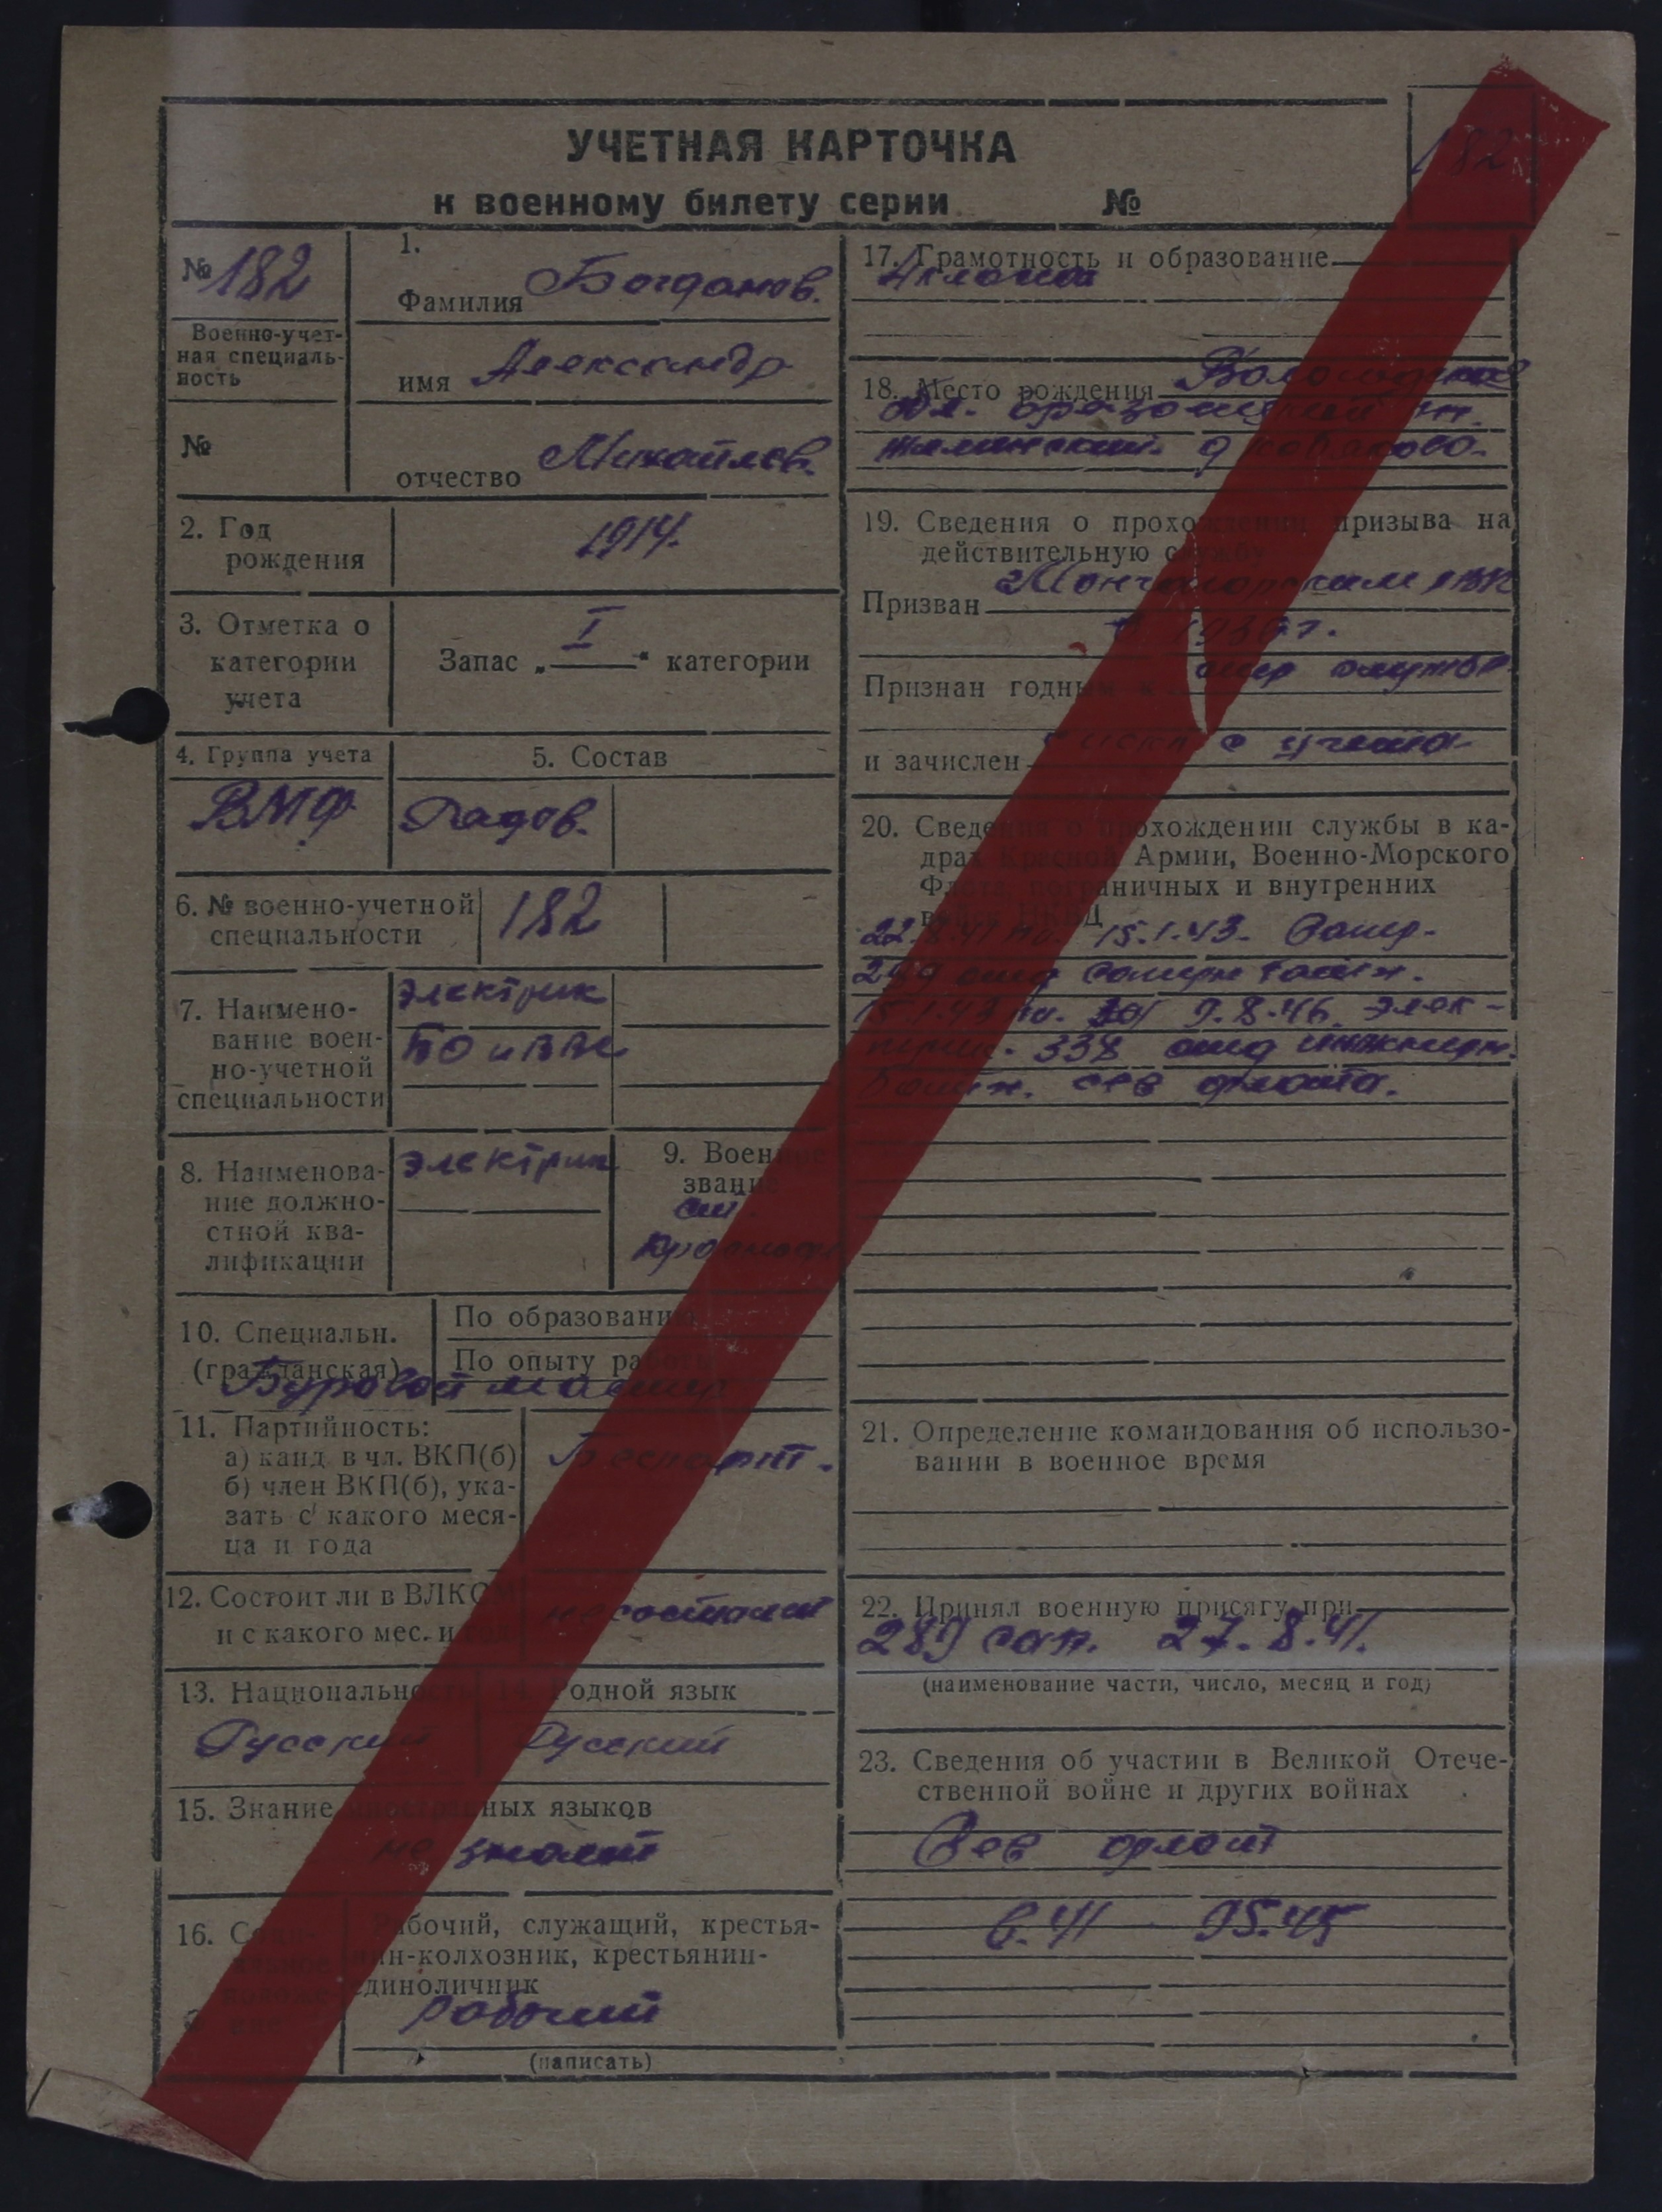 УЧЕТНАЯ КАРТОЧКА
к военному билету серии №
182
№ 182
Военно-учет-
ная специаль-
ность
№
1.
Фамилия Богданов.
имя Александр
отчество Михайлов.
2. Год
рождения
1914.
3. Отметка о
категории
учета
Запас „ I “ категории
4. Группа учета
ВМФ
5. Состав
Рядов.
6. № военно-учетной
специальности
182
7. Наимено-
вание воен-
но-учетной
специальности
Электрик
БО и
8. Наименова-
ние должно-
стной ква-
лификации
Электрик
9. Военное
звание
ст.
10. Специальн.
(гражданская)
По образованию
По опыту работы
Буровой мастер
11. Партийность:
а) канд. в чл. ВКП(б)
б) член ВКП(б), ука-
зать с какого меся-
ца и года
Беспарт.
12. Состоит ли в ВЛКСМ
и с какого мес. и год
не состоит
13. Национальность
Русский
14. Родной язык
Русский
15. Знание иностранных языков
не знает
16. Соци-
альное
положе-
ние
Рабочий, служащий, крестья-
нин-колхозник, крестьянин-
единоличник
рабочий
(написать)
17. Грамотность и образование
4 класса
18. Место рождения Вологодская
обл. р-н.
д
19. Сведения о прохождении призыва на
действительную службу
Призван Мончегорским РВК
Признан годным к стр службе
и зачислен с учета
20. Сведения о прохождении службы в ка-
драх Красной Армии, Военно-Морского
Флота, пограничных и внутренних
войск НКВД
22.8.41 по 15.1.43. Сапер.
289 отд саперн батян.
15.1.43 по 9.8.46. Элек-
трик. 338 отд инженерн.
батян. сев флота.
21. Определение командования об использо-
вании в военное время
22. Принял военную присягу при
289 сап. 27.8.41.
(наименование части, число, месяц и год)
23. Сведения об участии в Великой Отече-
ственной войне и других войнах
Сев флот